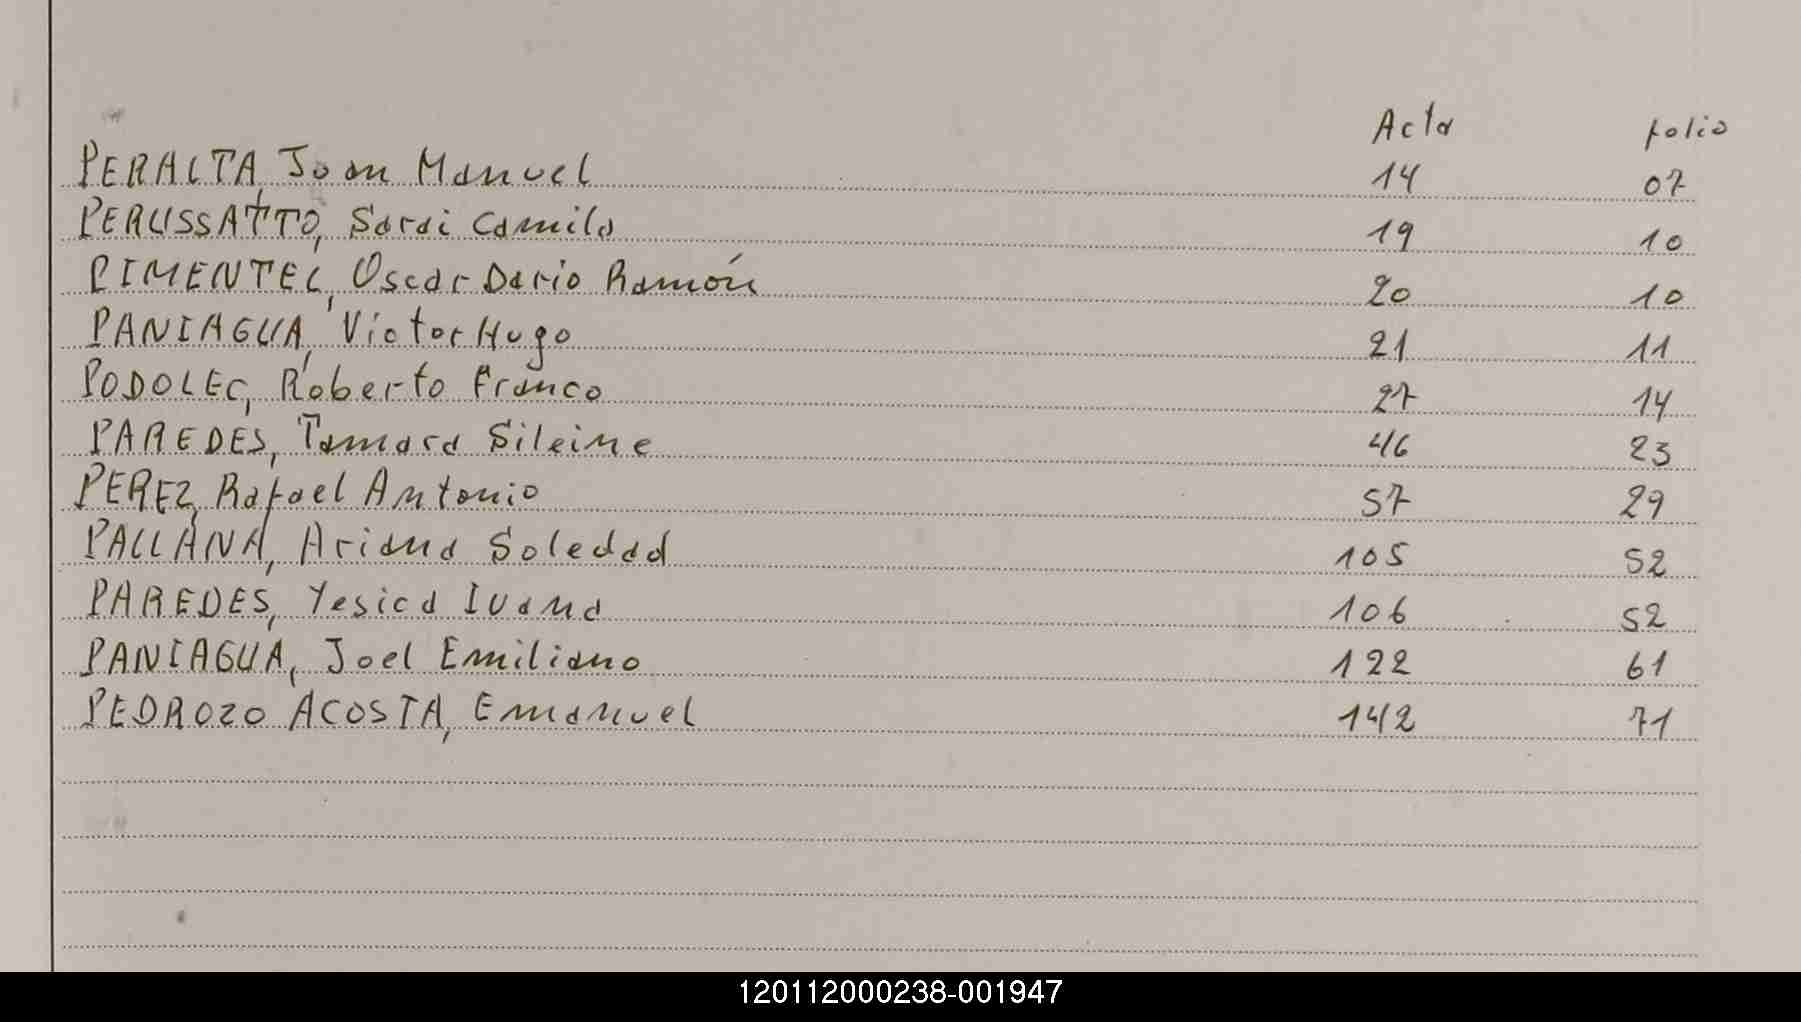 Acta folio
PERALTA, Joan Manuel 14 07
PERUSSATTO, Sarai Camila 19 10
PIMENTEL, Oscar Dario Ramón 20 10
PANIAGUA, Victor Hugo 21 11
PODOLEC, Roberto Franco 27 14
PAREDES, Tamara Sileine 46 23
PEREZ, Rafael Antonio 57 29
PALLANA, Ariana Soledad 105 52
PAREDES, Yesica Ivana 106 52
PANIAGUA, Joel Emiliano 122 61
PEDROZO ACOSTA, Emanuel 142 71
120112000238-001947